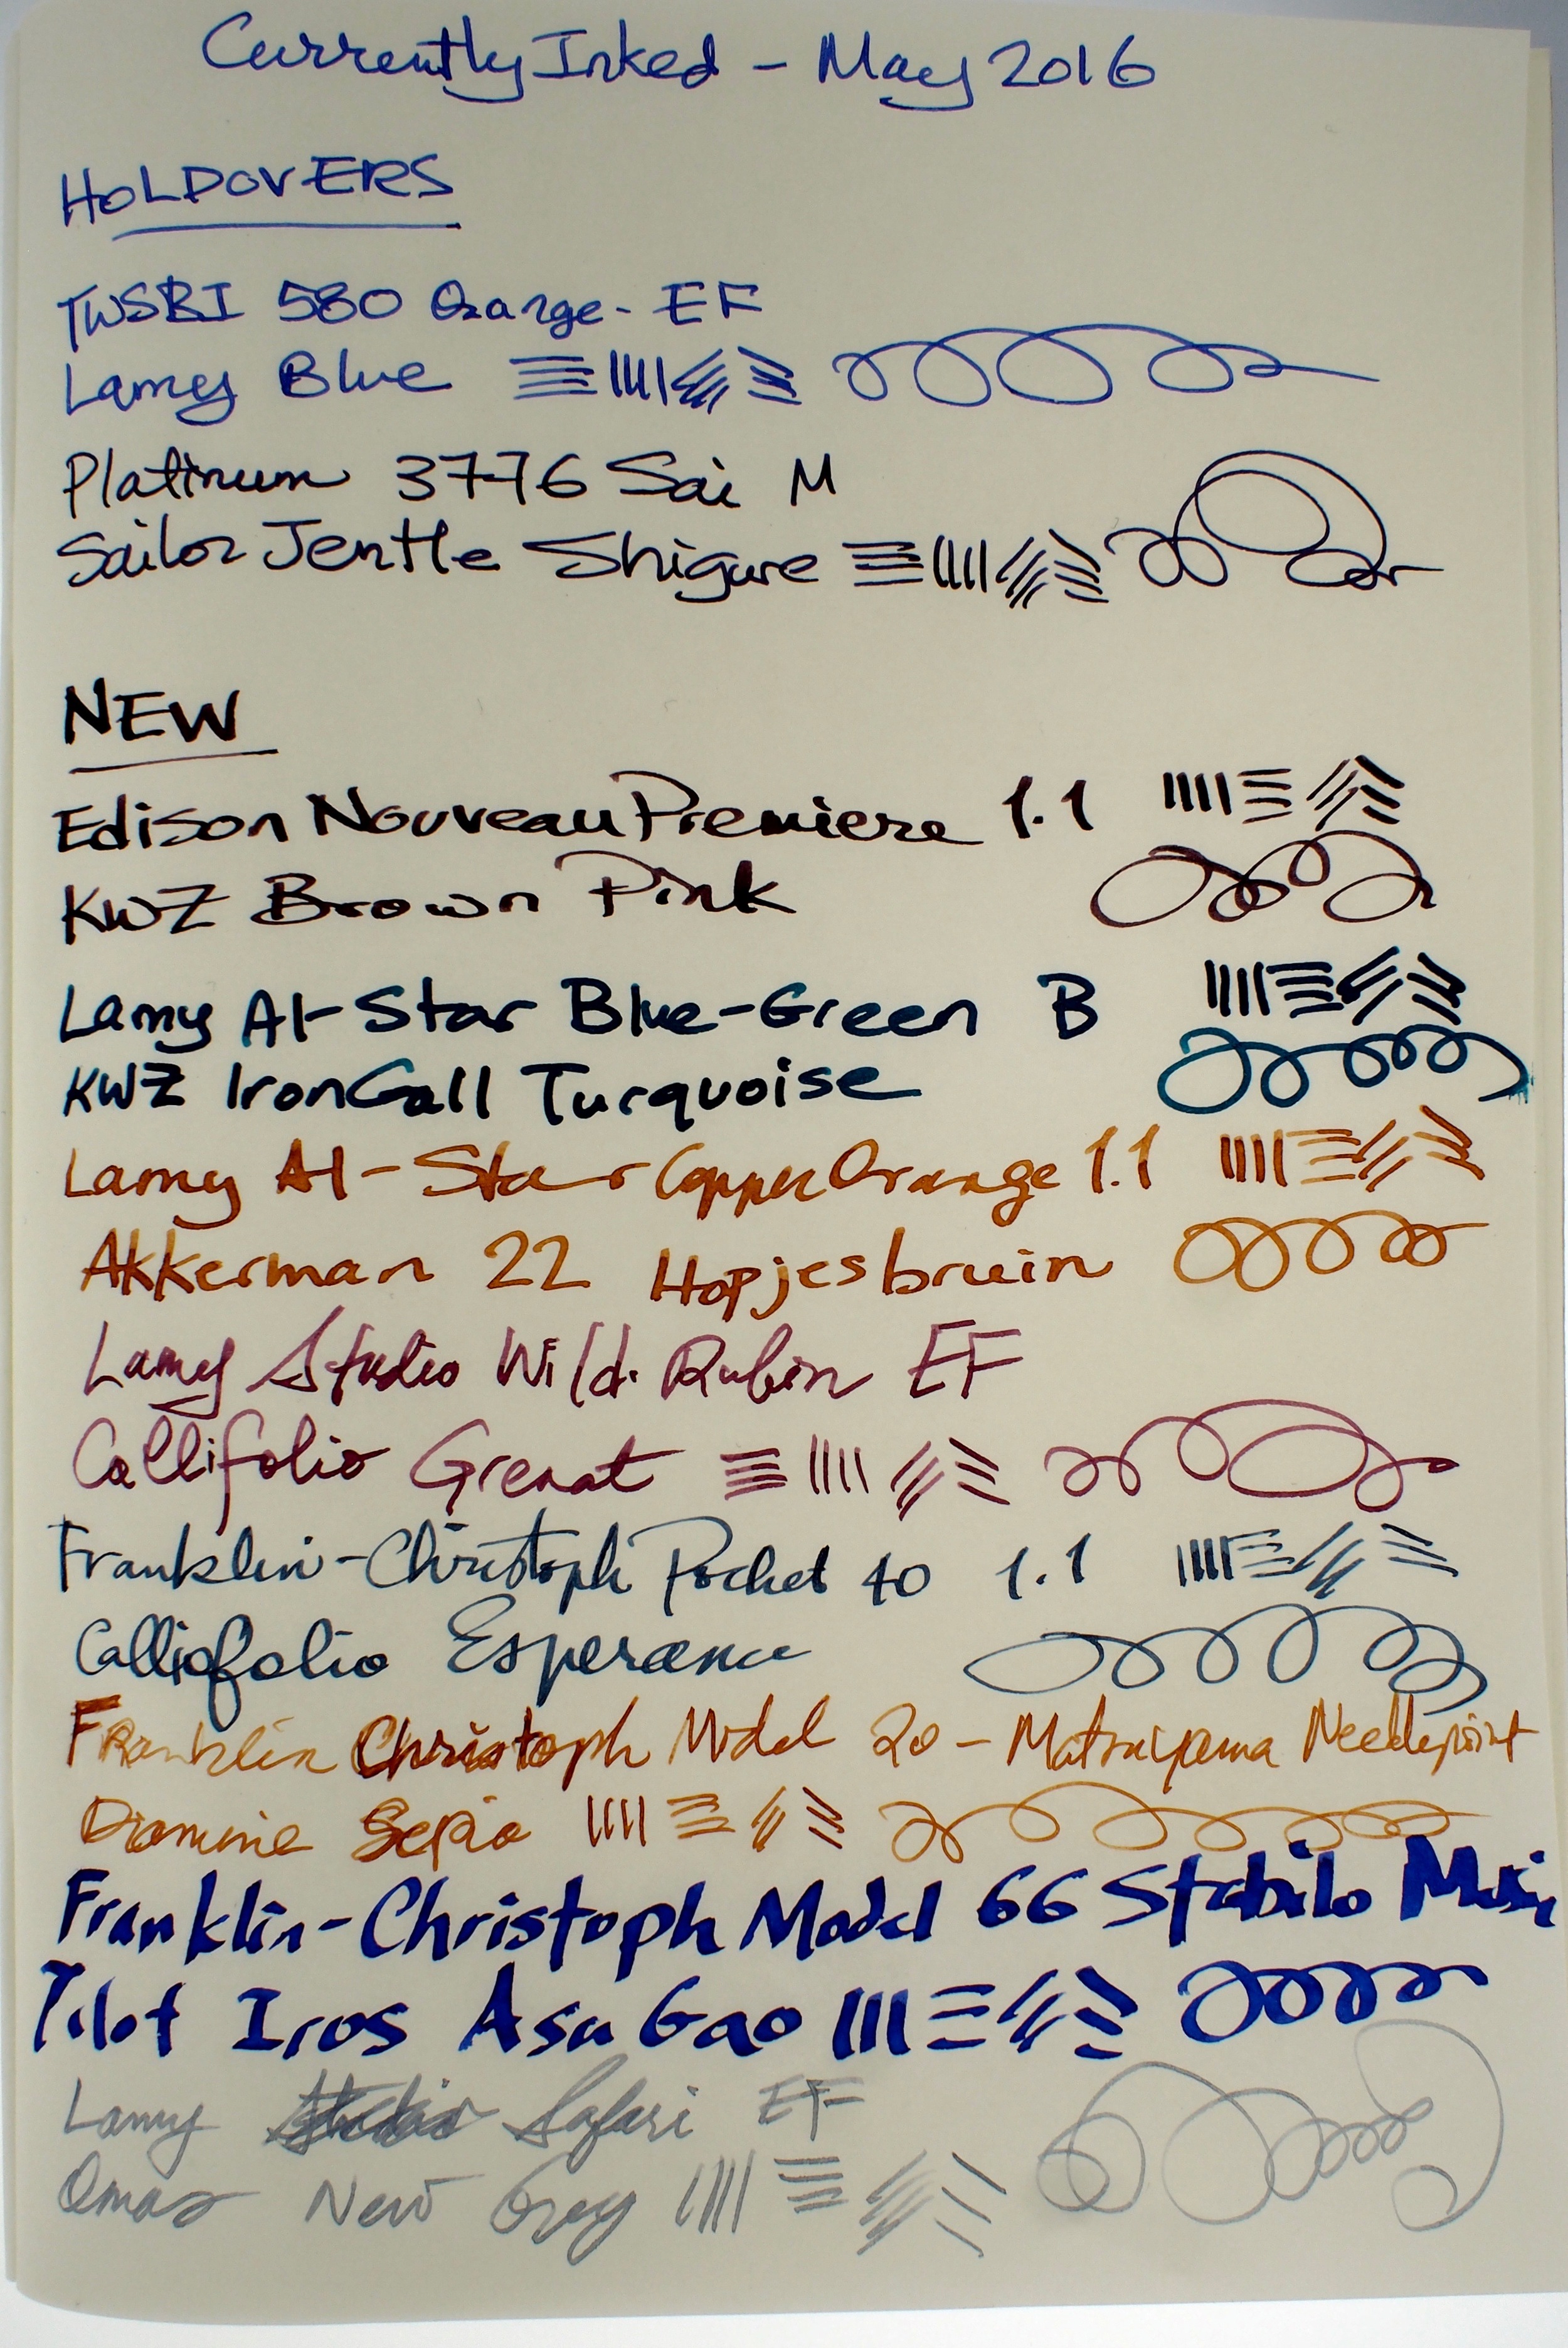 Currently Inked - May 2016
HOLDOVERS
TWSBI 580 Orange - EF
Lamy Blue
Platinum 3776 Sai M
Sailor Jentle Shigure
NEW
Edison Nouveau Premiere 1.1
KWZ Brown Pink
Lamy Al-Star Blue-Green B
KWZ Iron Gall Turquoise
Lamy Al-Star Copper Orange 1.1
Akkerman 22 Hopjesbruin
Lamy Studio Wild Rubin EF
Callifolio Grenat
Franklin-Christoph Pocket 40 1.1
Calliofolio Esperance
Franklin Christoph Model 20 - Matsuyama Needlepoint
Diamine Sepia
Franklin-Christoph Model 66 Stabilo Music
Pilot Iros Asa Gao
Lamy Safari EF
Omas New Grey